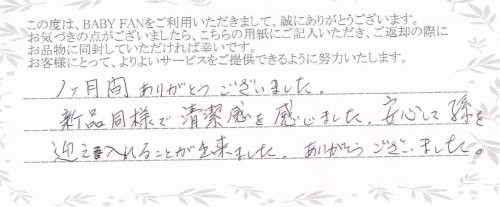 この度は、BABY FANをご利用いただきまして、誠にありがとうございます。
お気づきの点がございましたら、こちらの用紙にご記入いただき、ご返却の際に
お品物に同封していただければ幸いです。
お客様にとって、よりよいサービスをご提供できるように努力いたします。
1ヶ月間ありがとうございました。
新品同様で清潔感を感じました。安心して孫を
迎え入れることが出来ました。ありがとうございました。